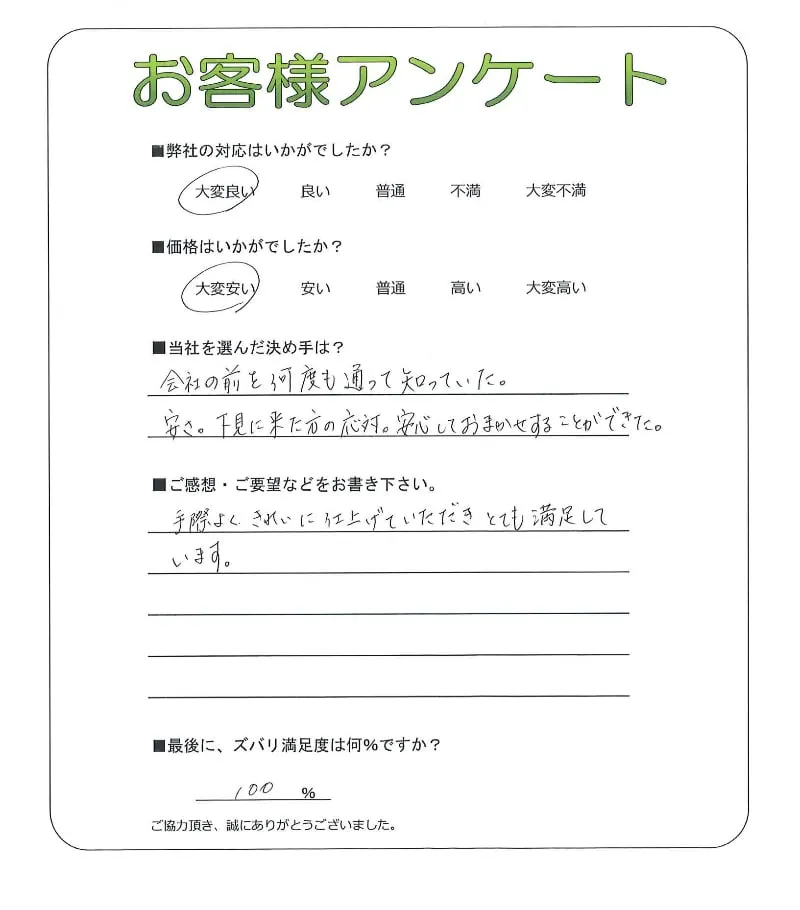 お客様アンケート
■弊社の対応はいかがでしたか？
大変良い 良い 普通 不満 大変不満
■価格はいかがでしたか？
大変安い 安い 普通 高い 大変高い
■当社を選んだ決め手は？
会社の前を何度も通って知っていた。
安さ。下見に来た方の応対。安心しておまかせすることができた。
■ご感想・ご要望などをお書き下さい。
手際よくきれいに仕上げていただきとても満足して
います。
■最後に、ズバリ満足度は何％ですか？
100 ％
ご協力頂き、誠にありがとうございました。